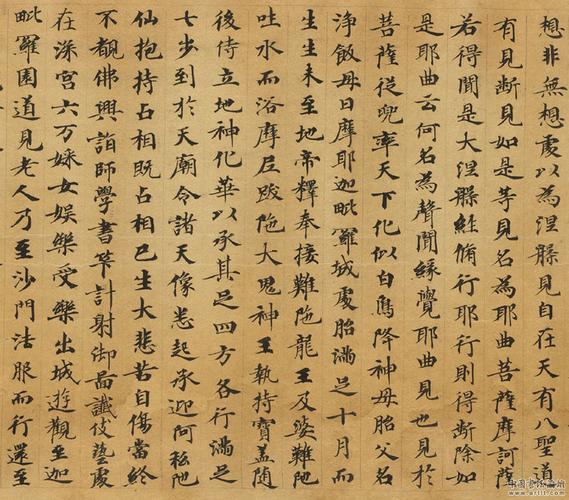 想非無想處以為涅槃見自在天有八聖道
有見斷見如是等見名為耶曲菩薩摩訶薩
若得聞是大涅槃經脩行耶行則得斷除如
是耶曲云何名為聲聞緣覺耶曲見也見於
菩薩從兜率天下化似白鳥降神母胎父名
淨飯母曰摩耶迦毗羅城處胎滿足十月而
生生未至地帝釋奉接難陁龍王及婆難陁
吐水而浴摩尼跋陁大鬼神王執持寶蓋隨
後侍立地神化華以承其足四方各行滿足
七步到於天廟令諸天像悉起承迎阿私陁
仙抱持占相既占相已生大悲苦自傷當終
不覩佛興詣師學書筭計射御啚讖伎藝處
在深宮六万婇女娛樂受樂出城遊觀至迦
毗羅園道見老人乃至沙門法服而行還至